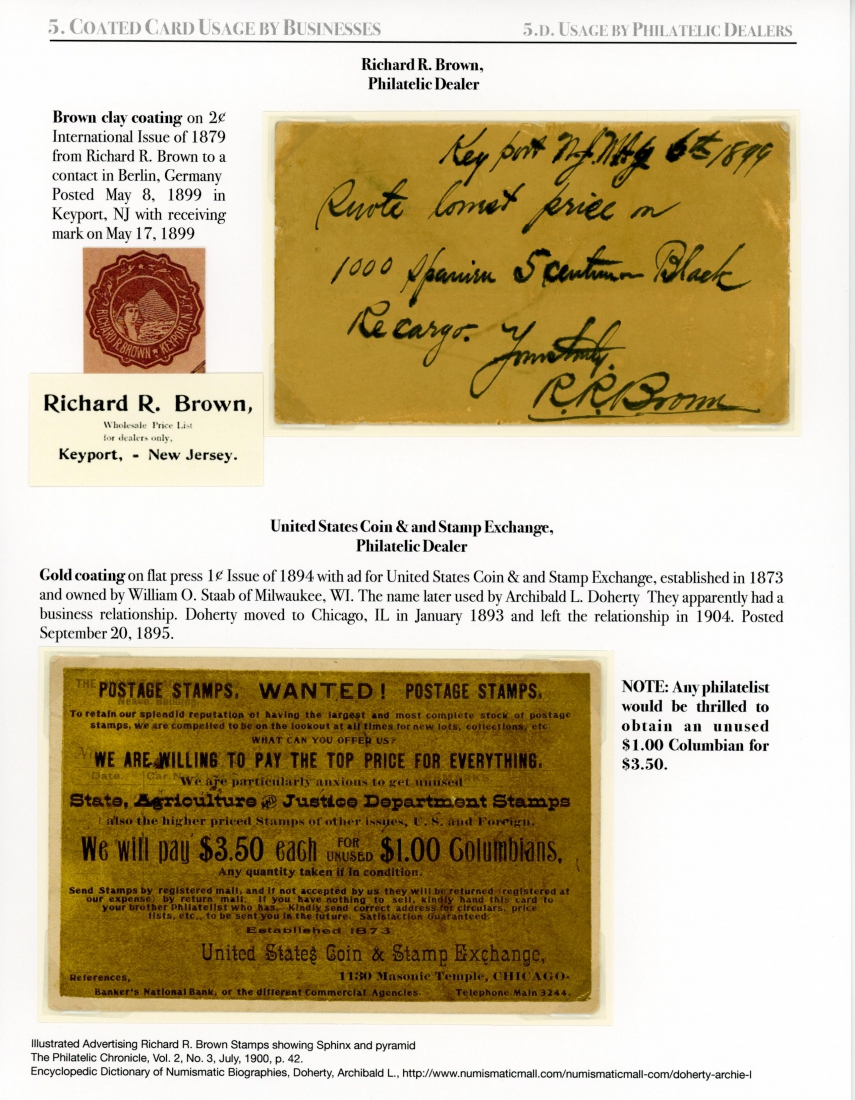 5. COATED CARD USAGE BY BUSINESSES 5.D. USAGE BY PHILATELIC DEALERS
Richard R. Brown,
Philatelic Dealer
Brown clay coating on 2¢
International Issue of 1879
from Richard R. Brown to a
contact in Berlin, Germany
Posted May 8, 1899 in
Keyport, NJ with receiving
mark on May 17, 1899
RICHARD R. BROWN ★ KEYPORT, N.J.
Richard R. Brown,
Wholesale Price List
for dealers only,
Keyport, - New Jersey.
Key port N.J. 6th 1899
Quote lowest price on
1000 Spanish 5 centimo Black
Recargo.
Yours truly.
R.R. Brown
United States Coin & and Stamp Exchange,
Philatelic Dealer
Gold coating on flat press 1¢ Issue of 1894 with ad for United States Coin & and Stamp Exchange, established in 1873
and owned by William O. Staab of Milwaukee, WI. The name later used by Archibald L. Doherty They apparently had a
business relationship. Doherty moved to Chicago, IL in January 1893 and left the relationship in 1904. Posted
September 20, 1895.
POSTAGE STAMPS. WANTED! POSTAGE STAMPS.
To retain our splendid reputation of having the largest and most complete stock of postage
stamps, we are compelled to be on the lookout at all times for new lots, collections, etc.
WHAT CAN YOU OFFER US?
WE ARE WILLING TO PAY THE TOP PRICE FOR EVERYTHING.
We are particularly anxious to get unused
State, Agriculture and Justice Department Stamps
also the higher priced Stamps of other issues, U. S. and Foreign.
We will pay $3.50 each FOR UNUSED $1.00 Columbians,
Any quantity taken if in condition.
Send Stamps by registered mail, and if not accepted by us they will be returned (registered at
our expense) by return mail. If you have nothing to sell, kindly hand this card to
your brother Philatelist who has. Kindly send correct address for circulars, price
lists, etc., to be sent you in the future. Satisfaction Guaranteed.
Established 1873
United States Coin & Stamp Exchange,
References, 1130 Masonic Temple, CHICAGO.
Banker's National Bank, or the different Commercial Agencies. Telephone Main 3244.
NOTE: Any philatelist
would be thrilled to
obtain an unused
$1.00 Columbian for
$3.50.
Illustrated Advertising Richard R. Brown Stamps showing Sphinx and pyramid
The Philatelic Chronicle, Vol. 2, No. 3, July, 1900, p. 42.
Encyclopedic Dictionary of Numismatic Biographies, Doherty, Archibald L., http://www.numismaticmall.com/numismaticmall-com/doherty-archie-l